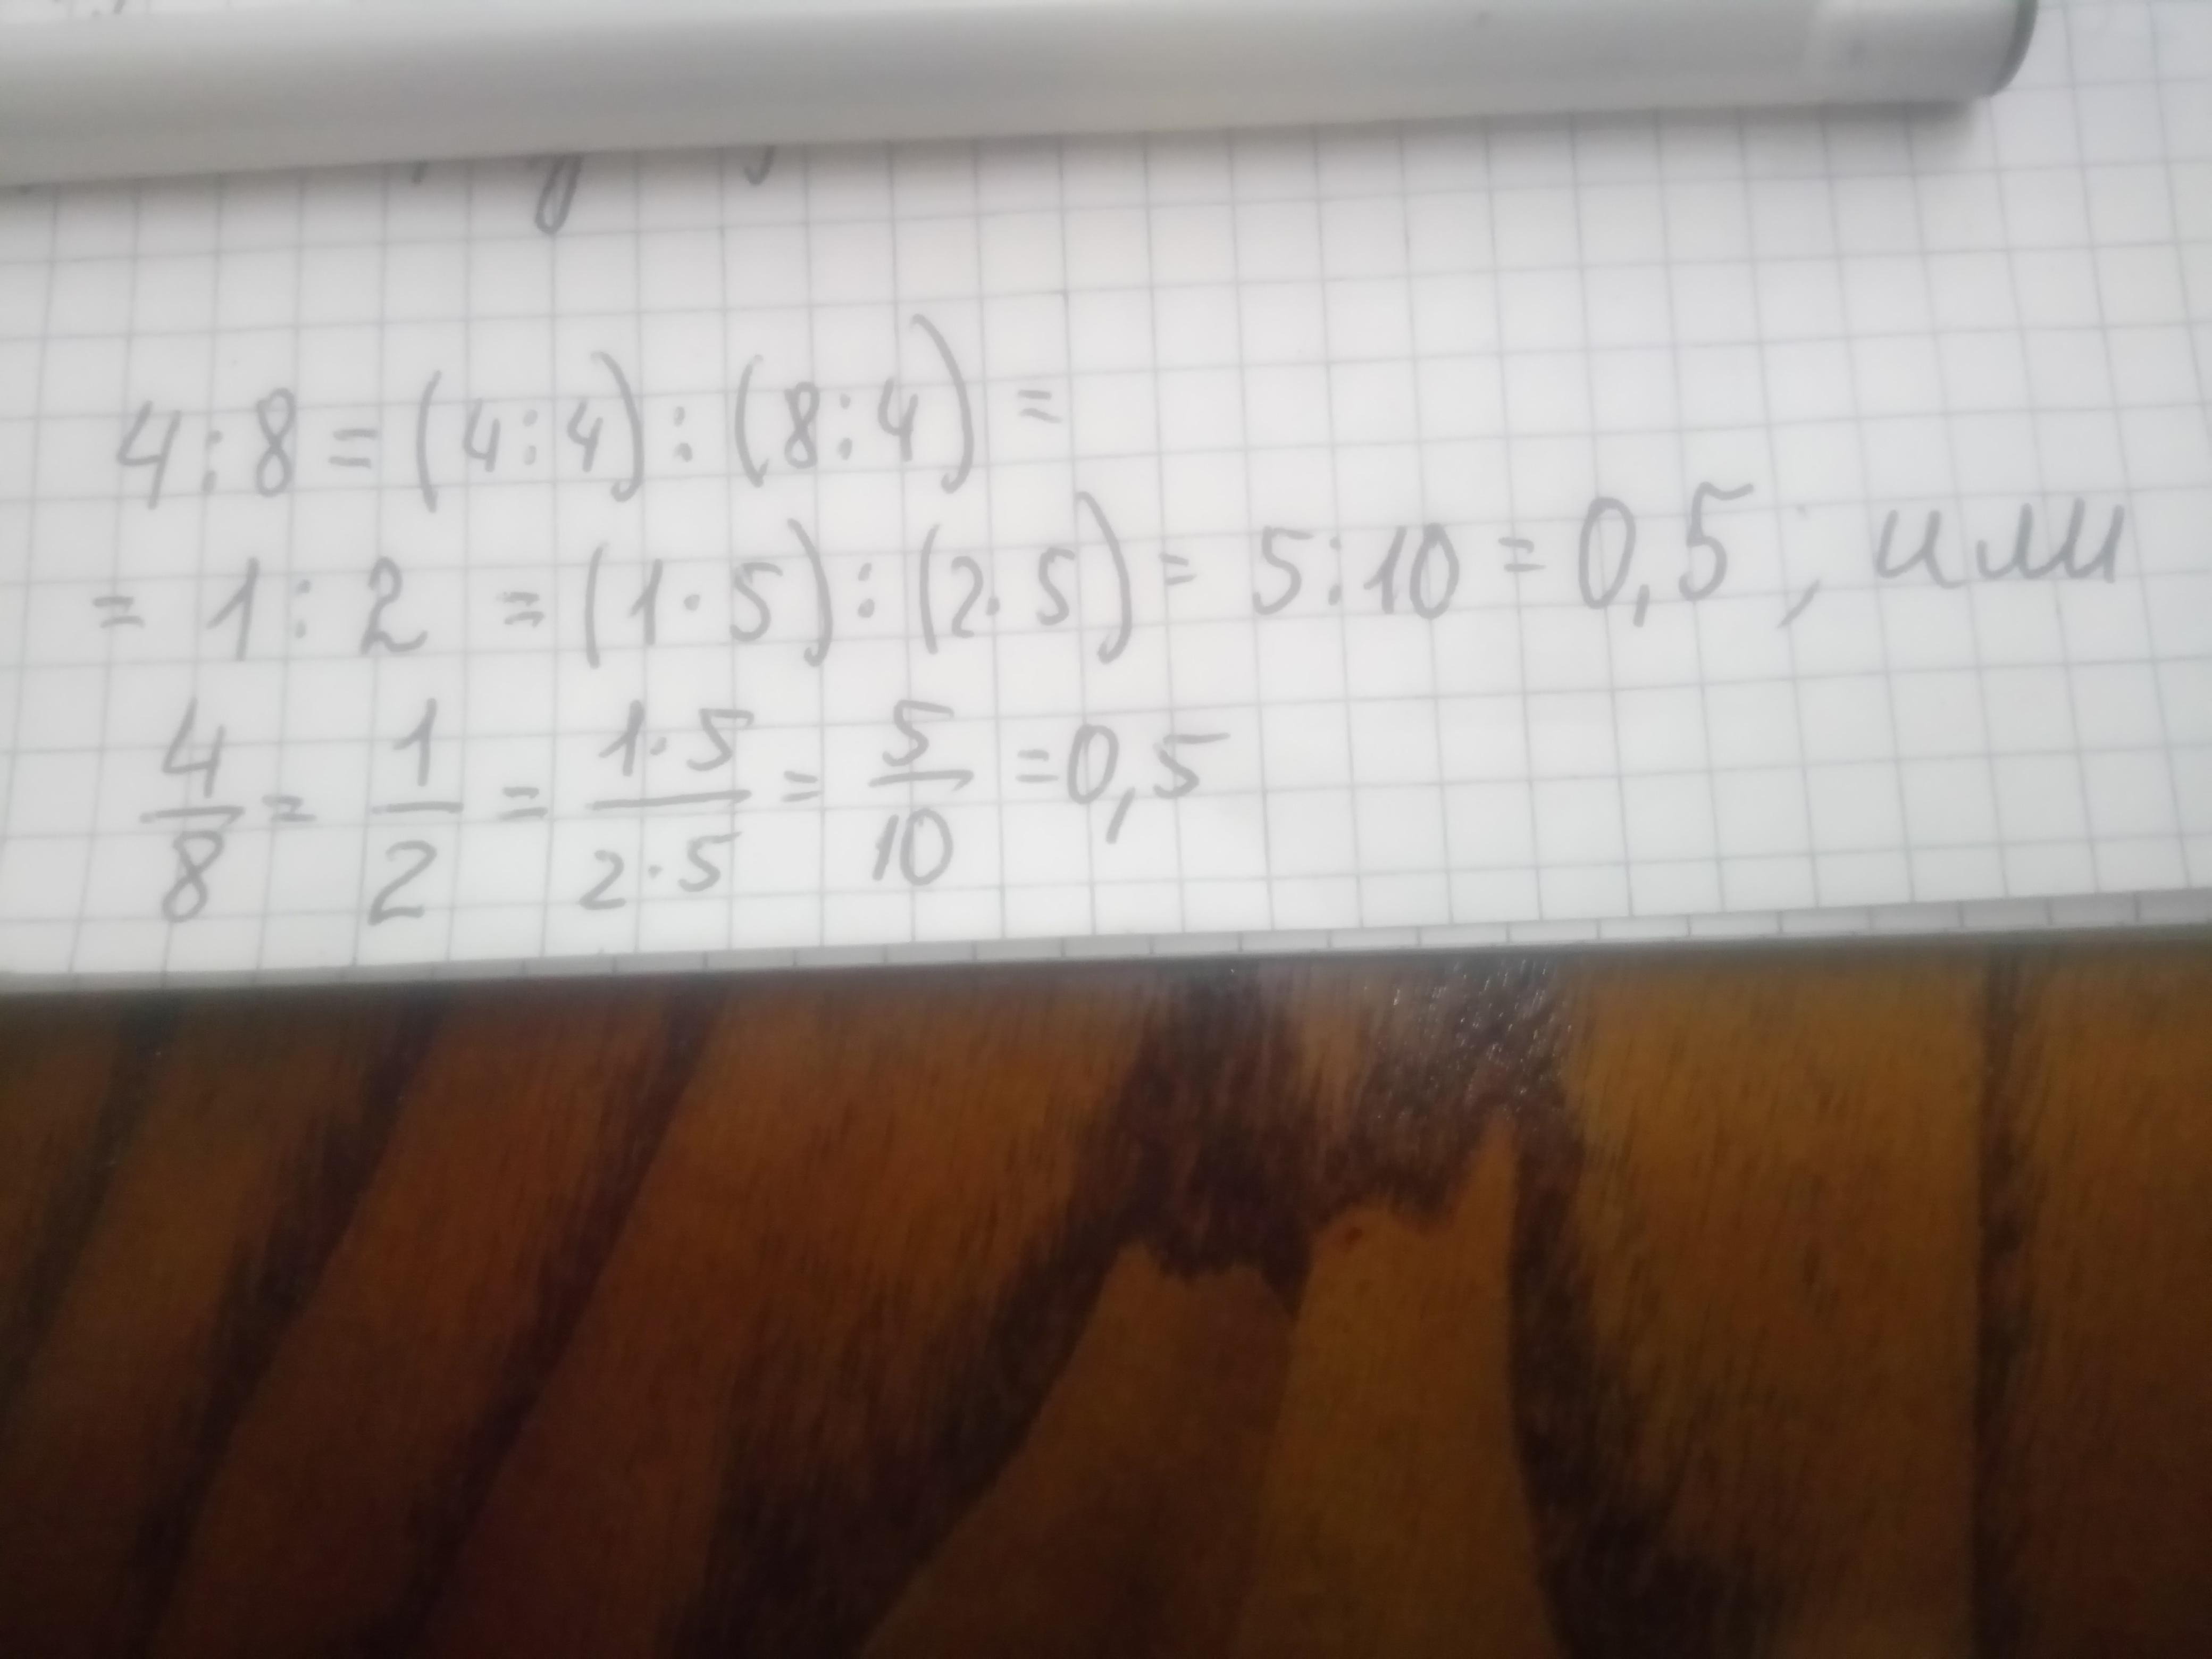 4:8=(4:4):(8:4)=
=1:2=(1·5):(2·5)=5:10=0,5; или
4/8=1/2=1·5/2·5=5/10=0,5